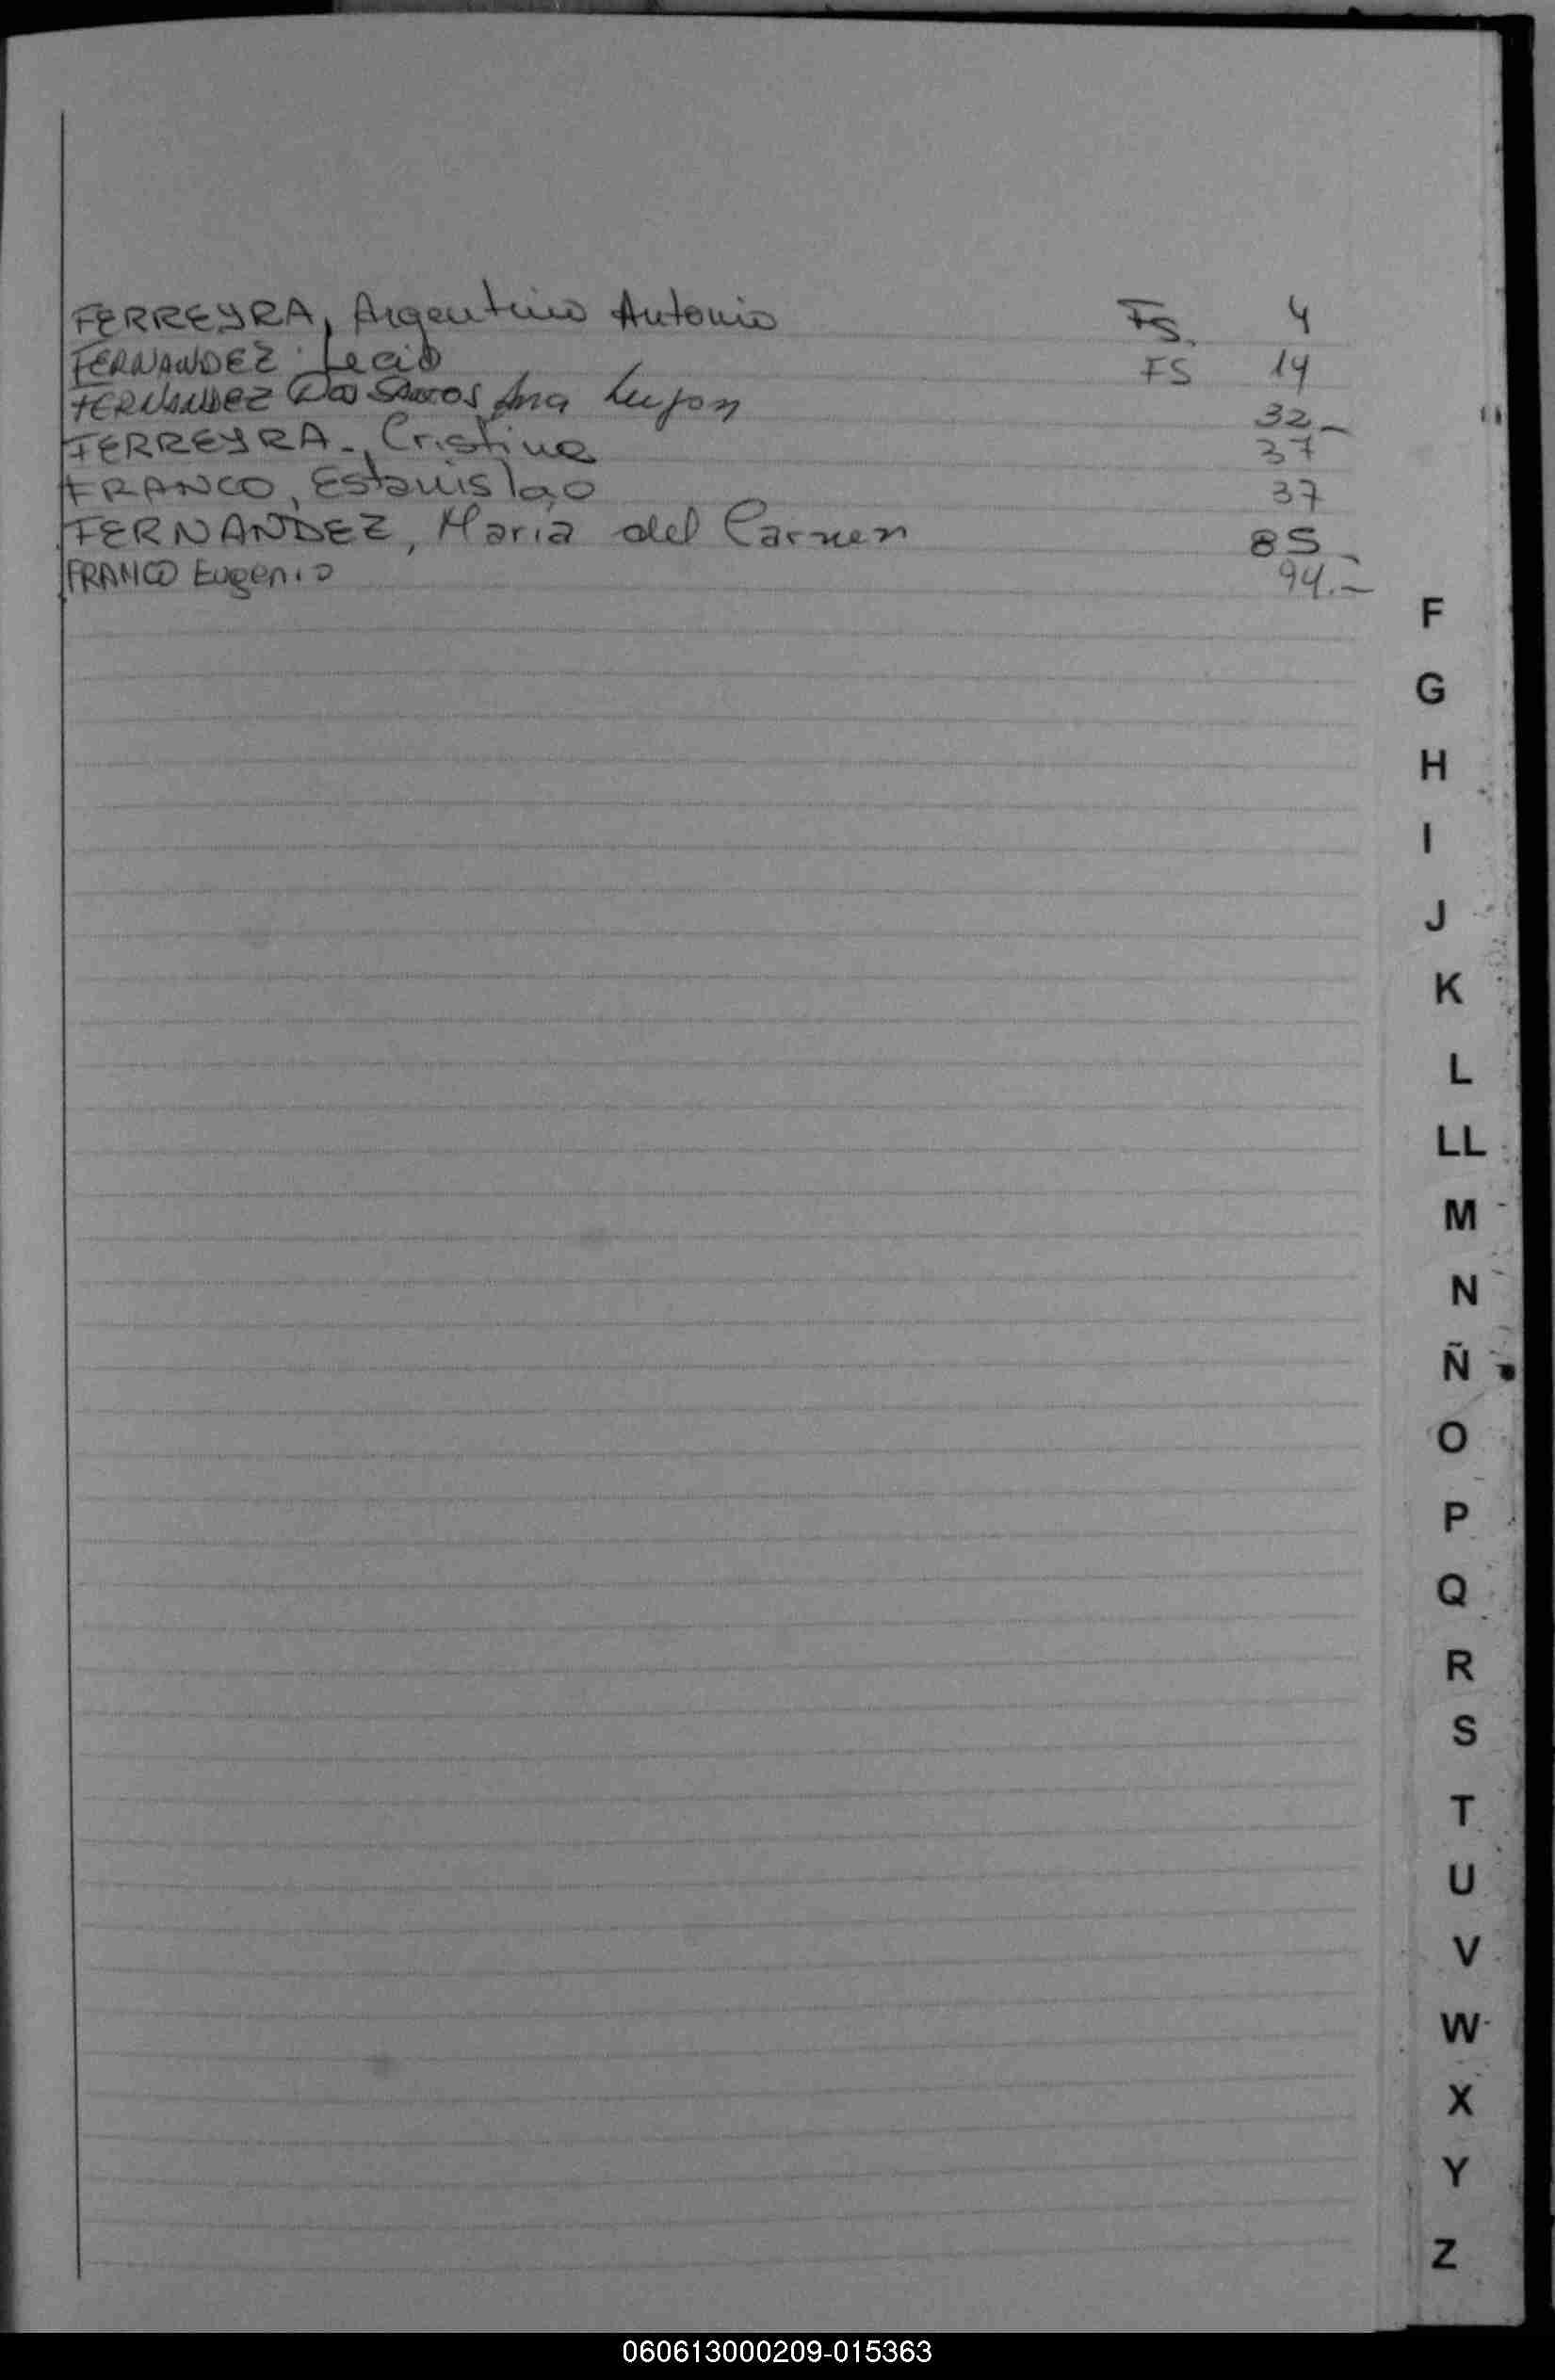 FERREYRA, Argentino Antonio FS. 4
FERNANDEZ Lecio FS 14
FERNANDEZ Dos Santos Ana Lujan 32_
FERREYRA-, Cristina 37
FRANCO, Estanislao 37
FERNANDEZ, Maria del Carmen 85_
FRANCO Eugenio 94.-
F
G
H
I
J
K
L
LL
M
N
Ñ
O
P
Q
R
S
T
U
V
W
X
Y
Z
060613000209-015363